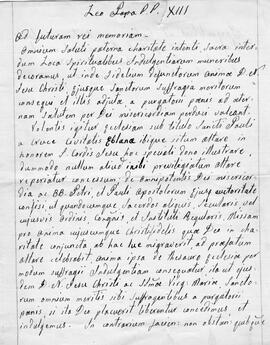 Leo Papa PP. XIII
Ad futuram rei memoriam.
Omnium Saluti paterna charitate intenti sacra inter
dum Loca Spiritualibus Indulgentiarum muneribus
decoramus, ut inde fidelium defunctorum animæ D. N.
Jesu Christi, Ejusque Sanctorum suffragia meritorum
consequi et illis adjutæ a purgatorii pœnis ad æter-
nam salutem per Dei misericordiam perduci valeant.
Volentes igitur Ecclesiam sub titulo Sancti Pauli
a Cruce Civitatis ibique situm Altare in
honorem S. Cordis Jesu hoc speciali dono illustrare
dummodo nullum aliud inibi privilegiatum altare
reperiatur concessum; de omnipotentis Dei misericor
dia ac BB. Petri, et Pauli Apostolorum Ejus auctoritate
confisi ut quandocumque Sacerdos aliquis, Sæcularis vel
cujusvis Ordinis, Congnis, et Instituti Regularis, Missam
pro anima cujuscumque Christifidelis quæ Deo in cha-
ritate conjuncta ab hac luce migraverit, ad præfatum
altare celebrabit, anima ipsa de thesauro Ecclesiæ per
modum suffragii Indulgentiam consequatur, ita ut ejus-
dem D. N. Jesu Christi ac Virg. Mariæ, Sancto-
rum omnium meritis sibi suffragantibus a purgatorii
pœnis, si ita Deo placuerit liberentur concedimus et
indulgemus. In contrarium facien: non obstan: quibuscumque